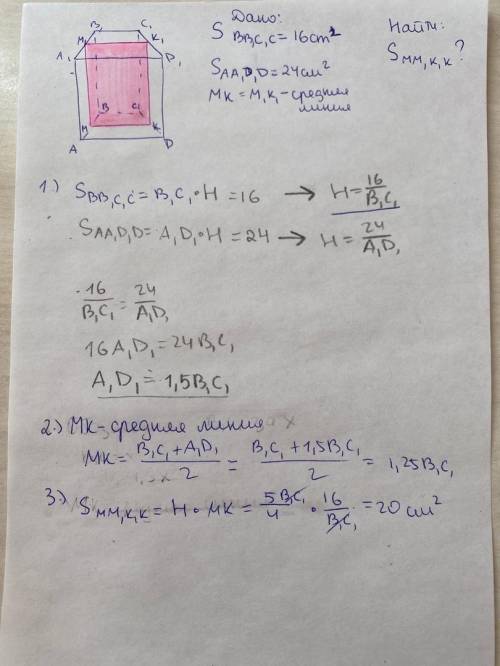 Дано:
S BB₁C₁C = 16cm²
S AA₁D₁D = 24см²
MK = M₁K₁ - средняя
линия
Найти:
S MM₁K₁K ?
B₁ C₁
M₁ K₁
A₁ D₁
B C
M K
A D
1.) S BB₁C₁C = B₁C₁ · H = 16 → H = 16/B₁C₁
S AA₁D₁D = A₁D₁ · H = 24 → H = 24/A₁D₁
16/B₁C₁ = 24/A₁D₁
16A₁D₁ = 24B₁C₁
A₁D₁ = 1,5B₁C₁
2.) MK - средняя линия
MK = (B₁C₁ + A₁D₁)/2 = (B₁C₁ + 1,5B₁C₁)/2 = 1,25B₁C₁
3.) S MM₁K₁K = H · MK = 5B₁C₁/4 · 16/B₁C₁ = 20 см²